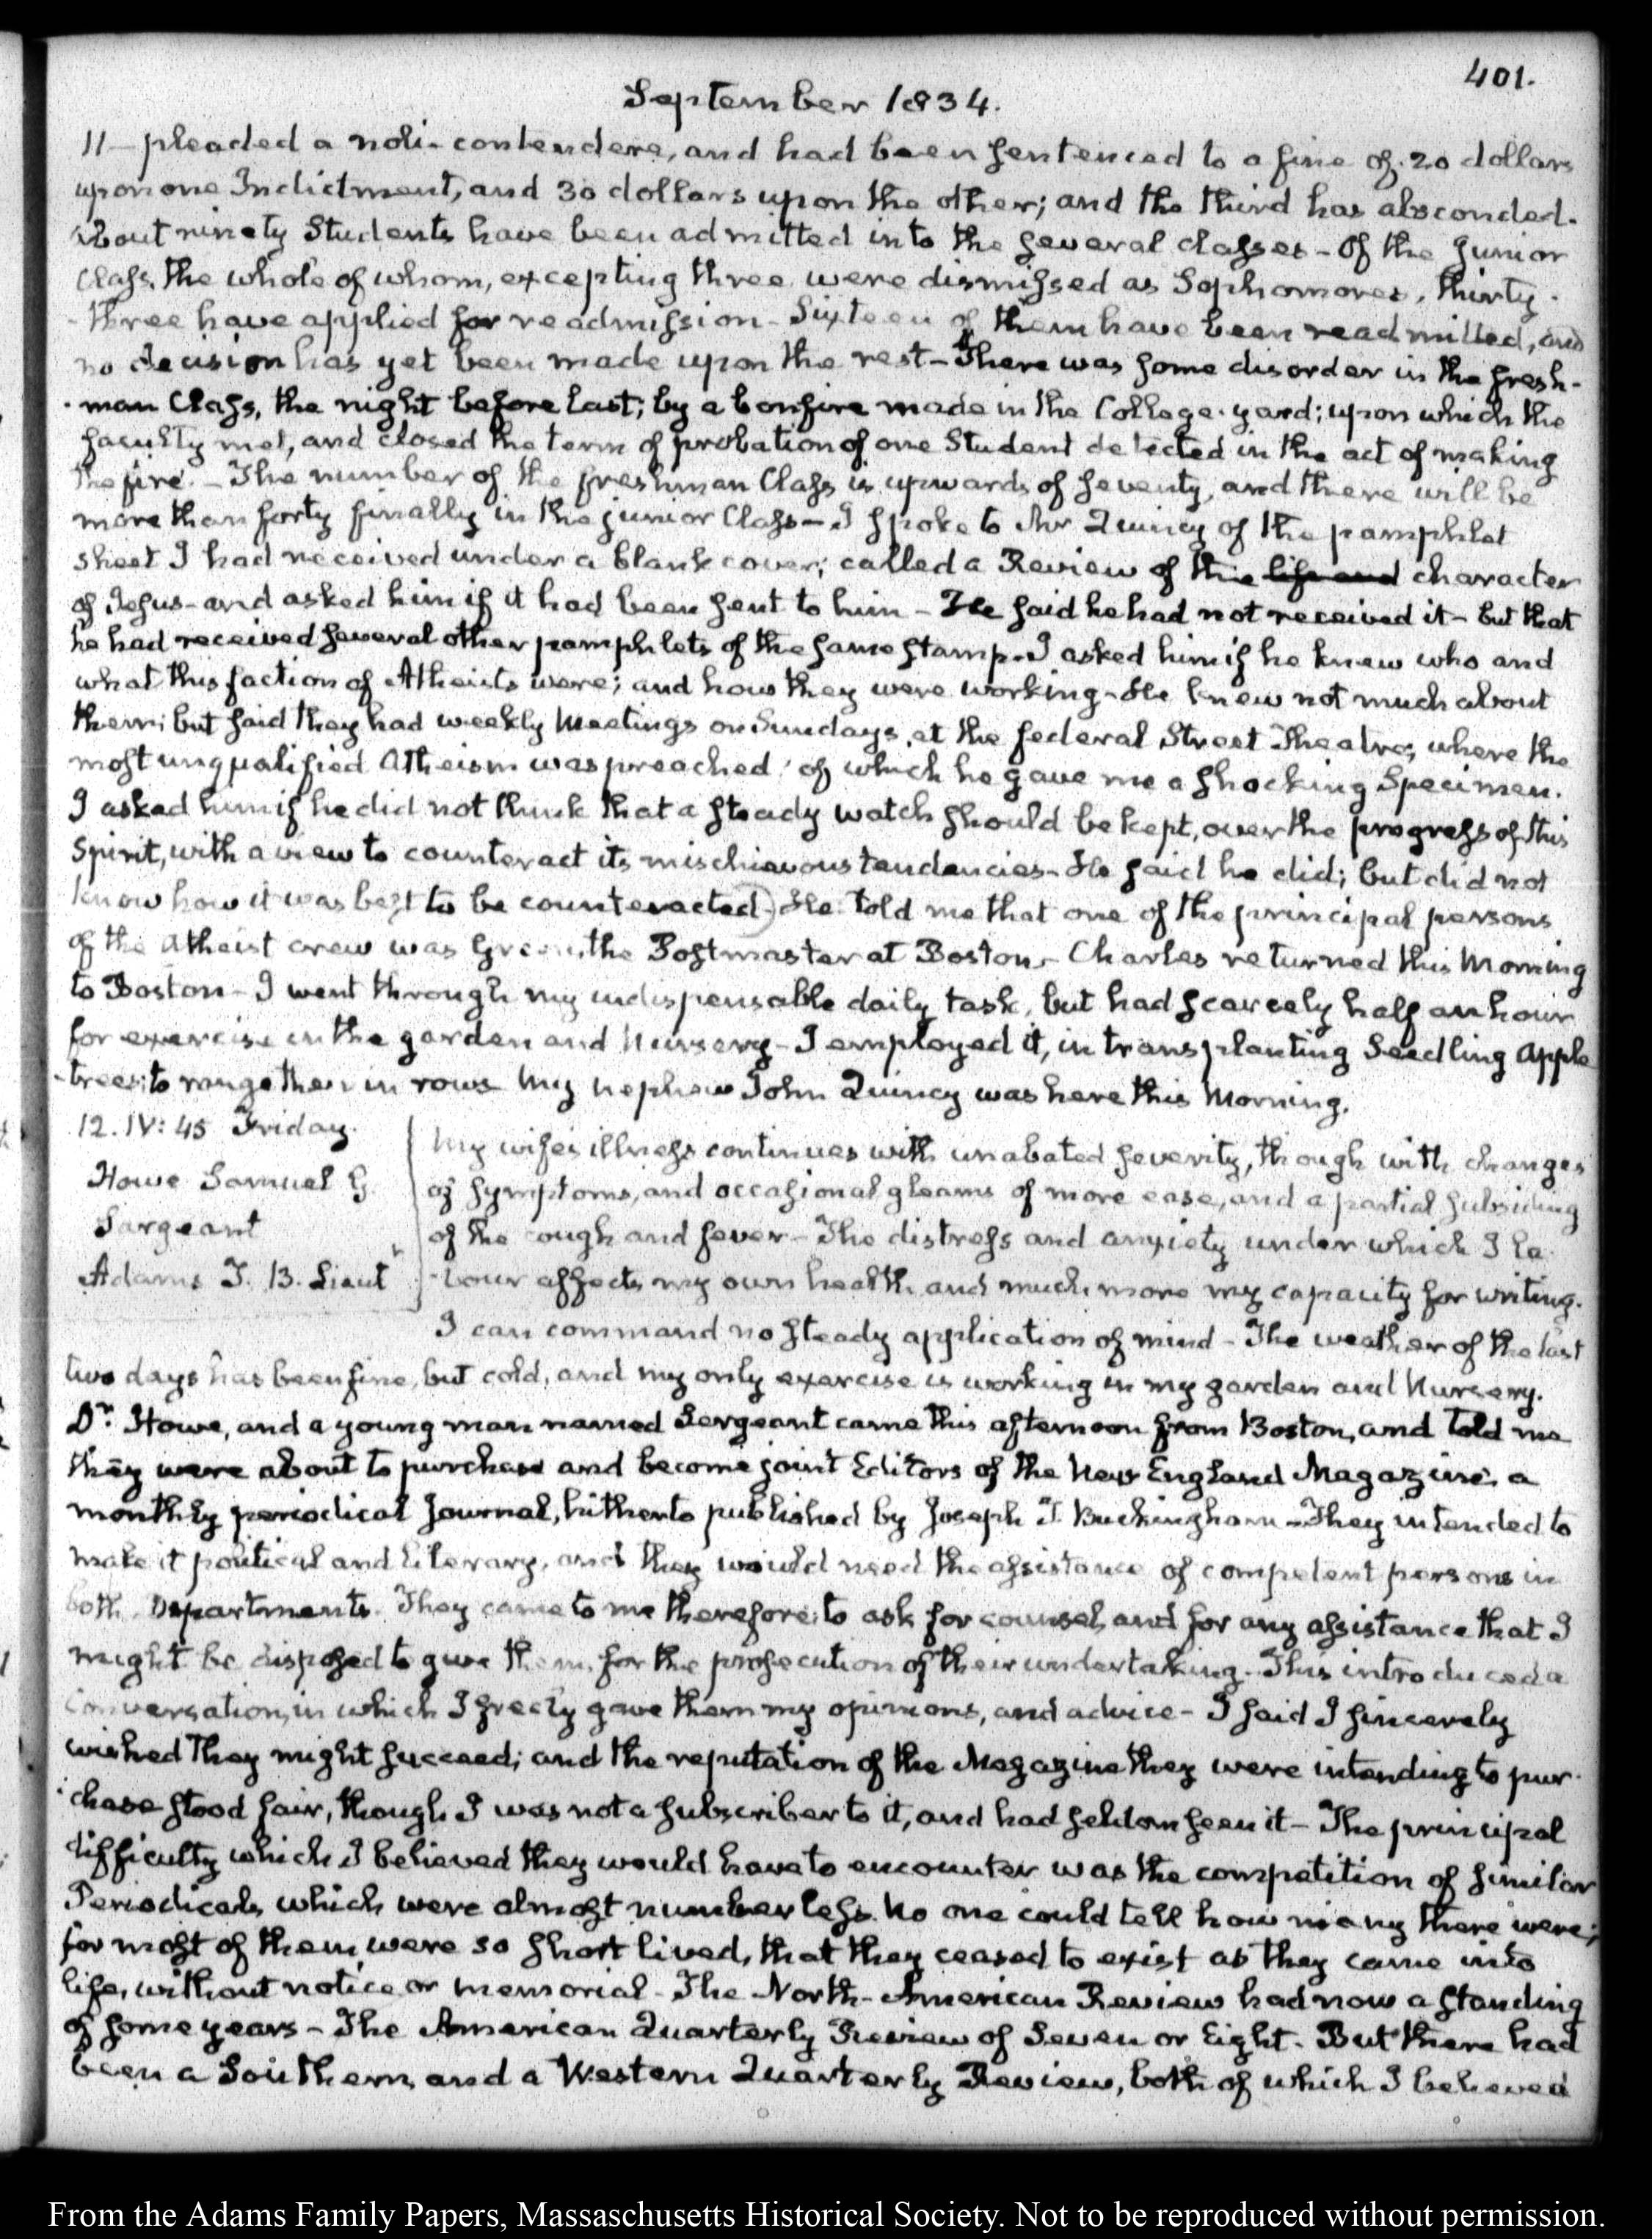 401.
September 1834.
11— pleaded a noli-contendere, and had been sentenced to a fine of 20 dollars
upon one Indictment, and 30 dollars upon the other; and the third has absconded.
About ninety Students have been admitted into the several classes - Of the junior
Class, the whole of whom, excepting three were dismissed as Sophomores, thirty-
-three have applied for readmission - Sixteen of them have been readmitted, and
no decision has yet been made upon the rest - There was some disorder in the fresh-
-man Class, the night before last; by a bonfire made in the College yard; upon which the
faculty met, and closed the term of probation of one Student detected in the act of making
the fire. - The number of the freshman Class is upwards of seventy, and there will be
more than forty finally in the junior Class - I spoke to Mr Quincy of the pamphlet
sheet I had received under a blank cover; called a Review of the life and character
of Jesus - and asked him if it had been sent to him - He said he had not received it - but that
he had received several other pamphlets of the same stamp. I asked him if he knew who and
what this faction of Atheists were; and how they were working - He knew not much about
them; but said they had weekly Meetings on Sundays, at the federal Street Theatre, where the
most unqualified Atheism was preached; of which he gave me a shocking Specimen.
I asked him if he did not think that a steady watch should be kept, over the progress of this
Spirit, with a view to counteract its mischievous tendencies - He said he did; but did not
know how it was best to be counteracted.) He told me that one of the principal persons
of the Atheist crew was Green, the Postmaster at Boston - Charles returned this Morning
to Boston - I went through my indispensable daily task, but had scarcely half an hour
for exercise in the garden and Nursery - I employed it, in transplanting Seedling Apple
-trees; to range them in rows My nephew John Quincy was here this Morning.
12. IV: 45 Friday.
Howe Samuel G.
Sargeant
Adams J. B. Lieut
My wife's illness continues with unabated severity, though with changes
of symptoms, and occasional gleams of more ease, and a partial subsiding
of the cough and fever - The distress and anxiety under which I la-
-bour affects my own health, and much more my capacity for writing.
I can command no steady application of mind - The weather of the last
two days has been fine, but cold, and my only exercise is working in my garden and Nursery.
Dr. Howe, and a young man named Sergeant came this afternoon from Boston, and told me
they were about to purchase and become joint Editors of the New England Magazine, a
monthly periodical Journal, hitherto published by Joseph T. Buckingham - They intended to
make it political and literary, and they would need the assistance of competent persons in
both Departments. They came to me therefore, to ask for counsel, and for any assistance that I
might be disposed to give them, for the prosecution of their undertaking. This introduced a
Conversation, in which I freely gave them my opinions, and advice - I said I sincerely
wished They might succeed; and the reputation of the Magazine they were intending to pur-
-chase stood fair, though I was not a subscriber to it, and had seldom seen it - The principal
difficulty which I believed they would have to encounter was the competition of similar
Periodicals, which were almost numberless. No one could tell how many there were;
for most of them were so short lived, that they ceased to exist as they came into
life, without notice or memorial - The North-American Review had now a standing
of some years - The American Quarterly Review of Seven or Eight. But there had
been a Southern, and a Western Quarterly Review, both of which I believed
From the Adams Family Papers, Massachusetts Historical Society. Not to be reproduced without permission.